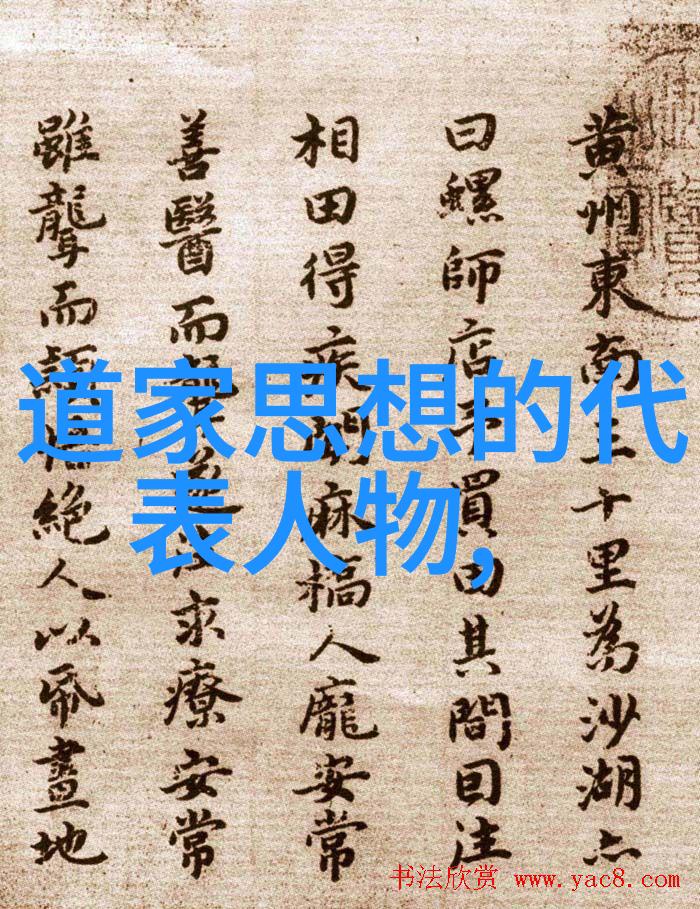 黃州東南三十里為沙湖亦
曰螺師店予買田其間因往
相田得疾聞麻橋人龐安常
善醫而聾遂往求療安常
雖聾而穎悟絕人以帋畫地
道家思想的代
表人物,
书法欣赏 www.yac8.com